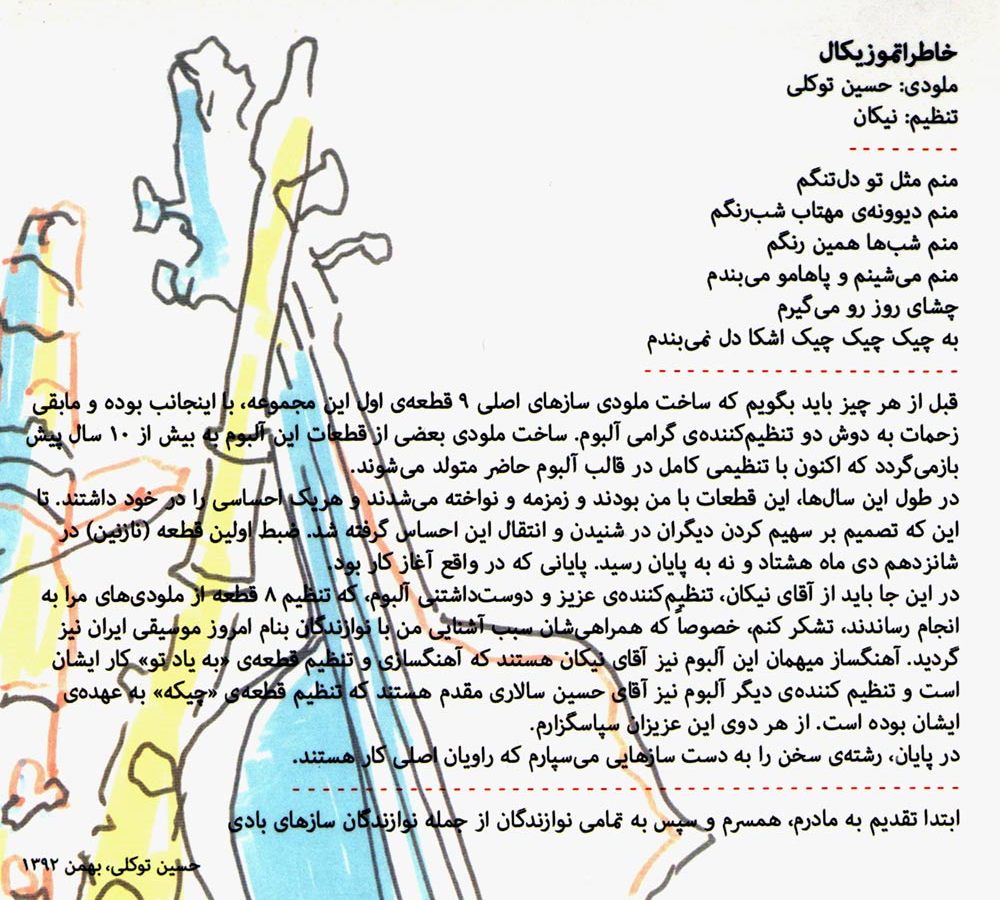 خاطراتموزیکال
ملودی: حسین توکلی
تنظیم: نیکان
منم مثل تو دل‌تنگم
منم دیوونه‌ی مهتاب شب‌رنگم
منم شب‌ها همین رنگم
منم می‌شینم و پاهامو می‌بندم
چشای روز رو می‌گیرم
به چیک چیک چیک اشکا دل نمی‌بندم
قبل از هر چیز باید بگویم که ساخت ملودی سازهای اصلی ۹ قطعه‌ی اول این مجموعه، با اینجانب بوده و مابقی
زحمات به دوش دو تنظیم‌کننده‌ی گرامی آلبوم. ساخت ملودی بعضی از قطعات این آلبوم به بیش از ۱۰ سال پیش
بازمی‌گردد که اکنون با تنظیمی کامل در قالب آلبوم حاضر متولد می‌شوند.
در طول این سال‌ها، این قطعات با من بودند و زمزمه و نواخته می‌شدند و هریک احساسی را در خود داشتند. تا
این که تصمیم بر سهیم کردن دیگران در شنیدن و انتقال این احساس گرفته شد. ضبط اولین قطعه (نازنین) در
شانزدهم دی ماه هشتاد و نه به پایان رسید. پایانی که در واقع آغاز کار بود.
در این جا باید از آقای نیکان، تنظیم‌کننده‌ی عزیز و دوست‌داشتنی آلبوم، که تنظیم ۸ قطعه از ملودی‌های مرا به
انجام رساندند، تشکر کنم، خصوصاً که همراهی‌شان سبب آشنایی من با نوازندگان بنام امروز موسیقی ایران نیز
گردید. آهنگساز میهمان این آلبوم نیز آقای نیکان هستند که آهنگسازی و تنظیم قطعه‌ی «به یاد تو» کار ایشان
است و تنظیم کننده‌ی دیگر آلبوم نیز آقای حسین سالاری مقدم هستند که تنظیم قطعه‌ی «چیکه» به عهده‌ی
ایشان بوده است. از هر دوی این عزیزان سپاسگزارم.
در پایان، رشته‌ی سخن را به دست سازهایی می‌سپارم که راویان اصلی کار هستند.
ابتدا تقدیم به مادرم، همسرم و سپس به تمامی نوازندگان از جمله نوازندگان سازهای بادی
حسین توکلی، بهمن ۱۳۹۲